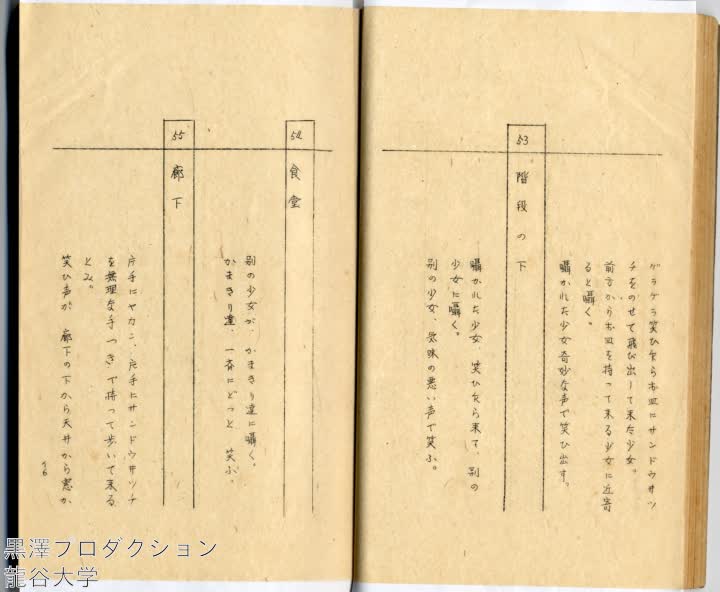 ゲラゲラ笑ひ乍らお皿にサンドウヰッ
チをのせて飛び出して来た少女。
前方からお皿を持って来る少女に近寄
ると囁く。
囁かれた少女奇妙な声で笑ひ出す。
53 階段の下
囁かれた少女、笑ひ乍ら来て、別の
少女に囁く。
別の少女、気味の悪い声で笑ふ。
54 食堂
別の少女が、かまきり達に囁く。
かまきり達、一斉にどっと 笑ふ。
55 廊下
片手にヤカン、片手にサンドウヰッチ
を無理な手つきで持って歩いて来る
とみ。
笑ひ声が 廊下の下から天井から窓か
黒澤プロダクション
龍谷大学